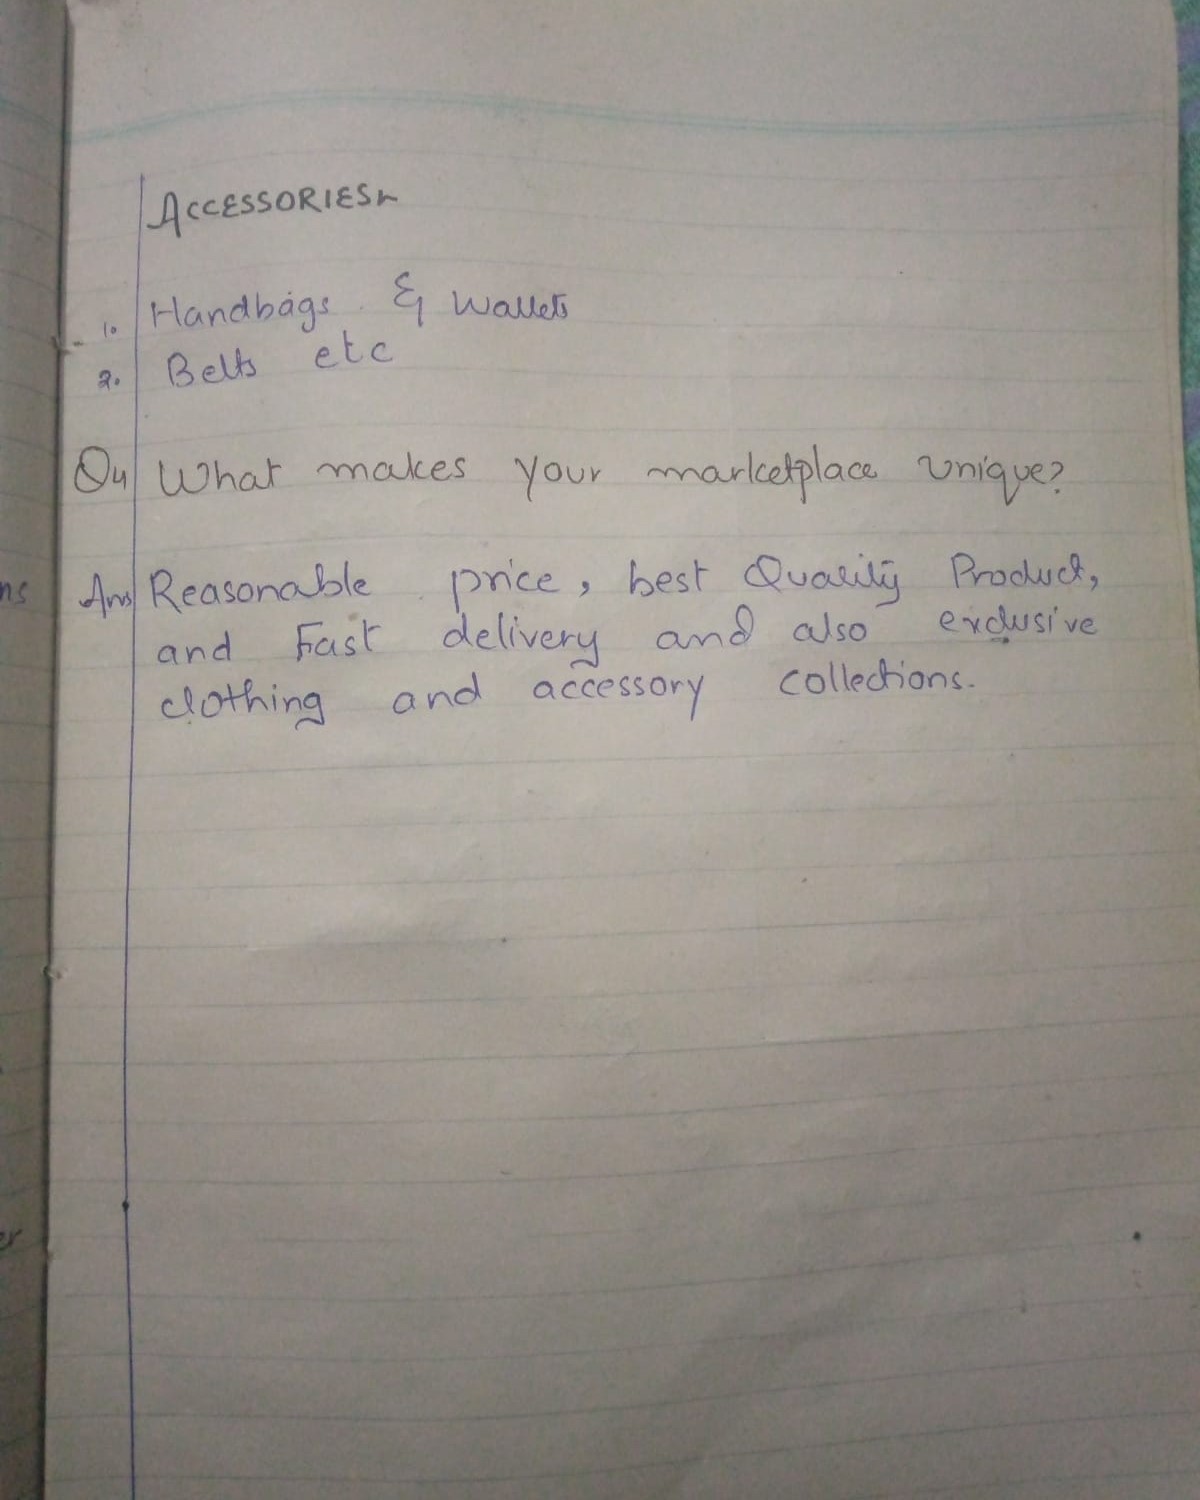 ACCESSORIES
1. Handbags & Wallets
2. Belts etc
Q4 What makes your marketplace unique?
Ans Reasonable price, best Quality Product,
and Fast delivery and also exclusive
clothing and accessory collections.
ns
er